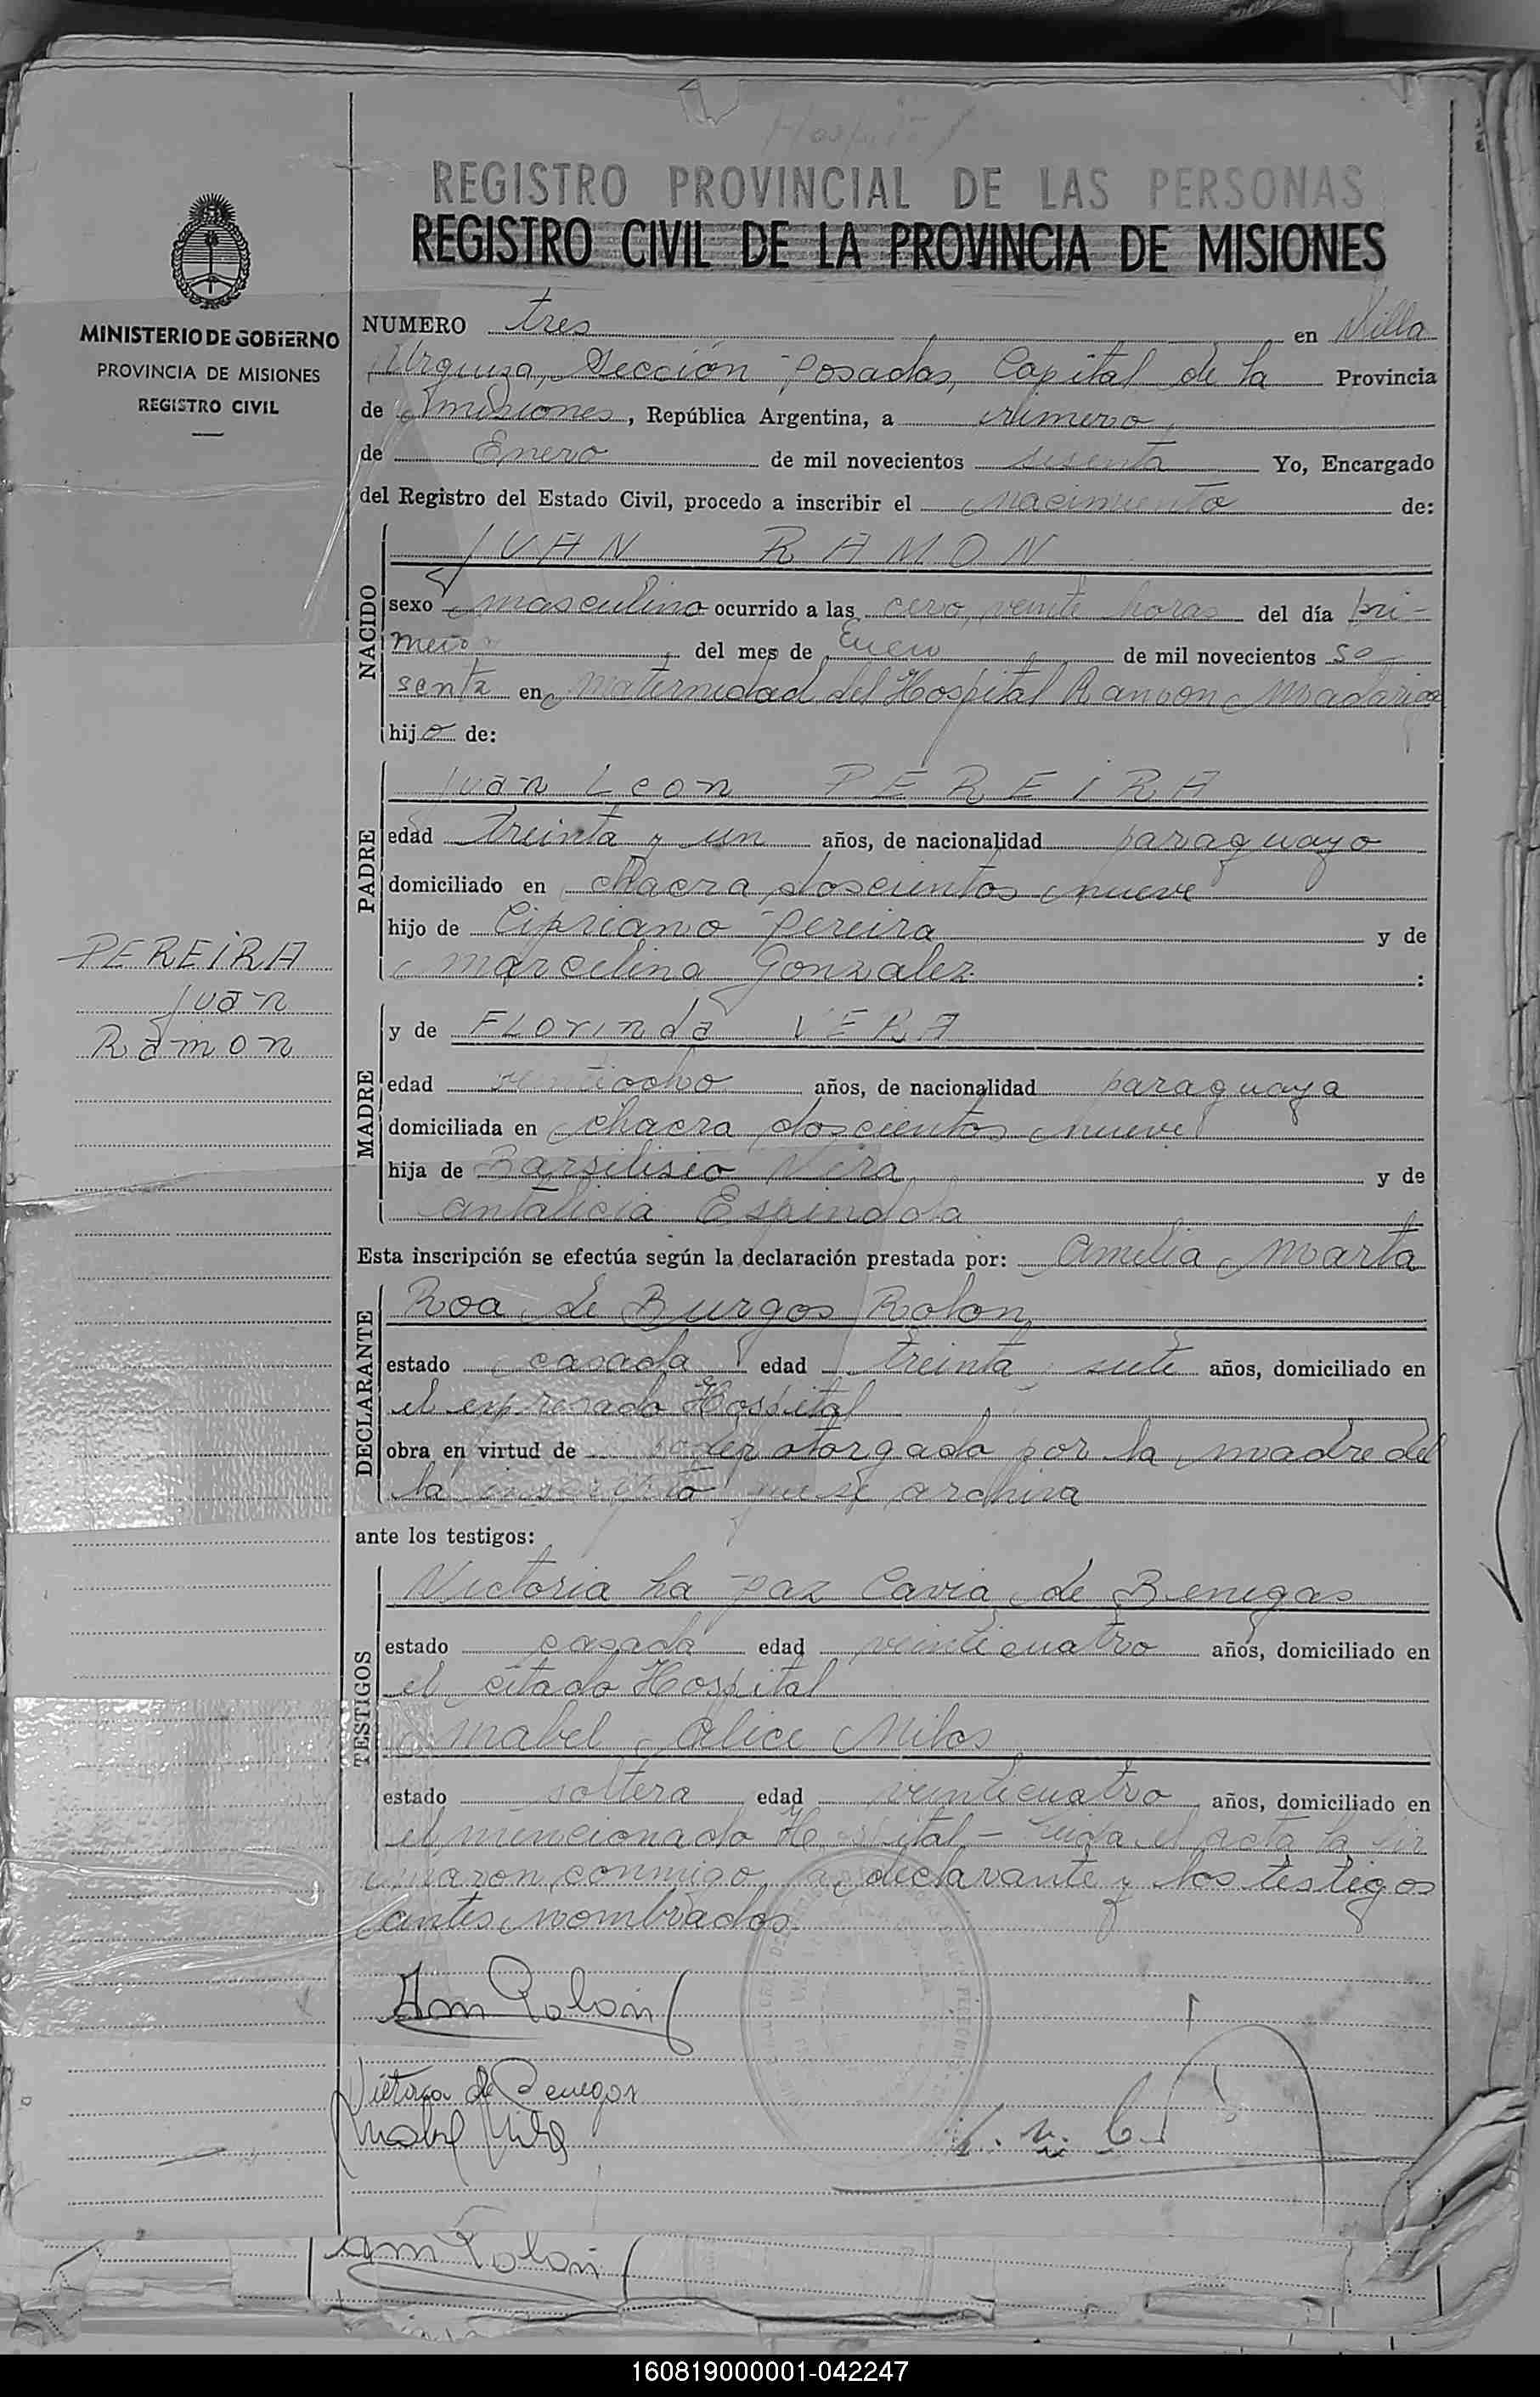 REGISTRO PROVINCIAL DE LAS PERSONAS
REGISTRO CIVIL DE LA PROVINCIA DE MISIONES
MINISTERIO DE GOBIERNO
PROVINCIA DE MISIONES
REGISTRO CIVIL
NUMERO tres en Villa
Urquiza, Sección Posadas, Capital de la Provincia
de Misiones, República Argentina, a primero
de Enero de mil novecientos sesenta Yo, Encargado
del Registro del Estado Civil, procedo a inscribir el nacimiento de:
NACIDO
JUAN RAMON
sexo masculino ocurrido a las cero, veinte horas del día pri-
mero del mes de Enero de mil novecientos se
senta en Maternidad del Hospital Ramon Madariaga
hijo de:
PADRE
Juan Leon PEREIRA
edad treinta y un años, de nacionalidad paraguayo
domiciliado en chacra doscientos nueve
hijo de Cipriano Pereira y de
Marcelina Gonzalez :
PEREIRA
Juan
Ramon
MADRE
y de FLorinda VERA
edad veintiocho años, de nacionalidad paraguaya
domiciliada en chacra doscientos nueve
hija de Barsilisio Vera y de
Antalicia Espindola
Esta inscripción se efectúa según la declaración prestada por: Amelia Marta
DECLARANTE
Roa de Burgos Rolon
estado casada edad treinta siete años, domiciliado en
el expresado Hospital
obra en virtud de poder otorgado por la madre del
la inscripto que se archiva
ante los testigos:
TESTIGOS
Victoria La Paz Cavia de Benegas
estado casada edad veinticuatro años, domiciliado en
el citado Hospital
Mabel Alice Milos
estado soltera edad veinticuatro años, domiciliado en
el mencionado Hospital - Leida el acta la fir
maron conmigo, la declarante y los testigos
antes nombrados.
Rolon
Victoria de Benegas
Mabel
Rolon
160819000001-042247